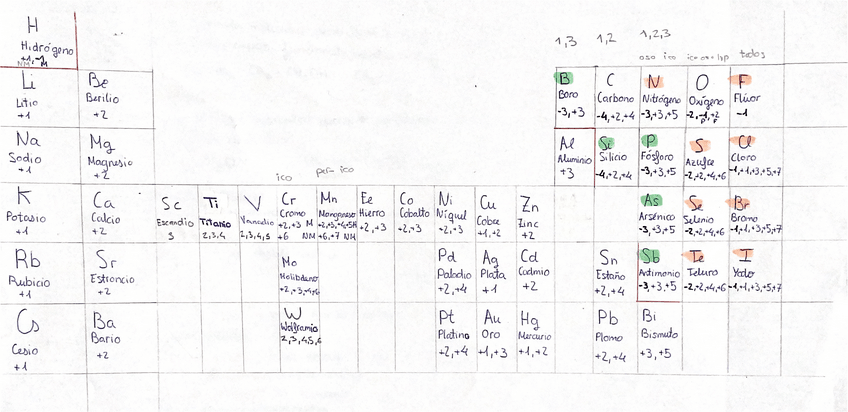 H
Hidrógeno
+1, -1
NM M
1,3 1,2 1,2,3
oso ico todos
Li Be B C N O F
Litio Berilio Boro Carbono Nitrógeno Oxígeno Flúor
+1 +2 -3,+3 -4,+2,+4 -3,+3,+5 -2,-1,+2 -1
Na Mg Al Si P S Cl
Sodio Magnesio Aluminio Silicio Fósforo Azufre Cloro
+1 +2 +3 -4,+2,+4 -3,+3,+5 -2,+2,+4,+6 -1,+1,+3,+5,+7
ico per-ico
K Ca Sc Ti V Cr Mn Fe Co Ni Cu Zn As Se Br
Potasio Calcio Escandio Titanio Vanadio Cromo Manganeso Hierro Cobalto Níquel Cobre Zinc Arsénico Selenio Bromo
+1 +2 3 2,3,4 2,3,4,5 +2,+3 M +2,+3,+4,+5M +2,+3 +2,+3 +2,+3 +1,+2 +2 -3,+3,+5 -2,+2,+4,+6 -1,+1,+3,+5,+7
+6 NM +6,+7 NM
Rb Sr Mo Pd Ag Cd Sn Sb Te I
Rubicio Estroncio Molibdeno Paladio Plata Cadmio Estaño Antimonio Teluro Yodo
+1 +2 +2,+3,+4,+6 +2,+4 +1 +2 +2,+4 -3,+3,+5 -2,+2,+4,+6 -1,+1,+3,+5,+7
Cs Ba W Pt Au Hg Pb Bi
Cesio Bario Wolframio Platino Oro Mercurio Plomo Bismuto
+1 +2 2,3,4,5,6 +2,+4 +1,+3 +1,+2 +2,+4 +3,+5